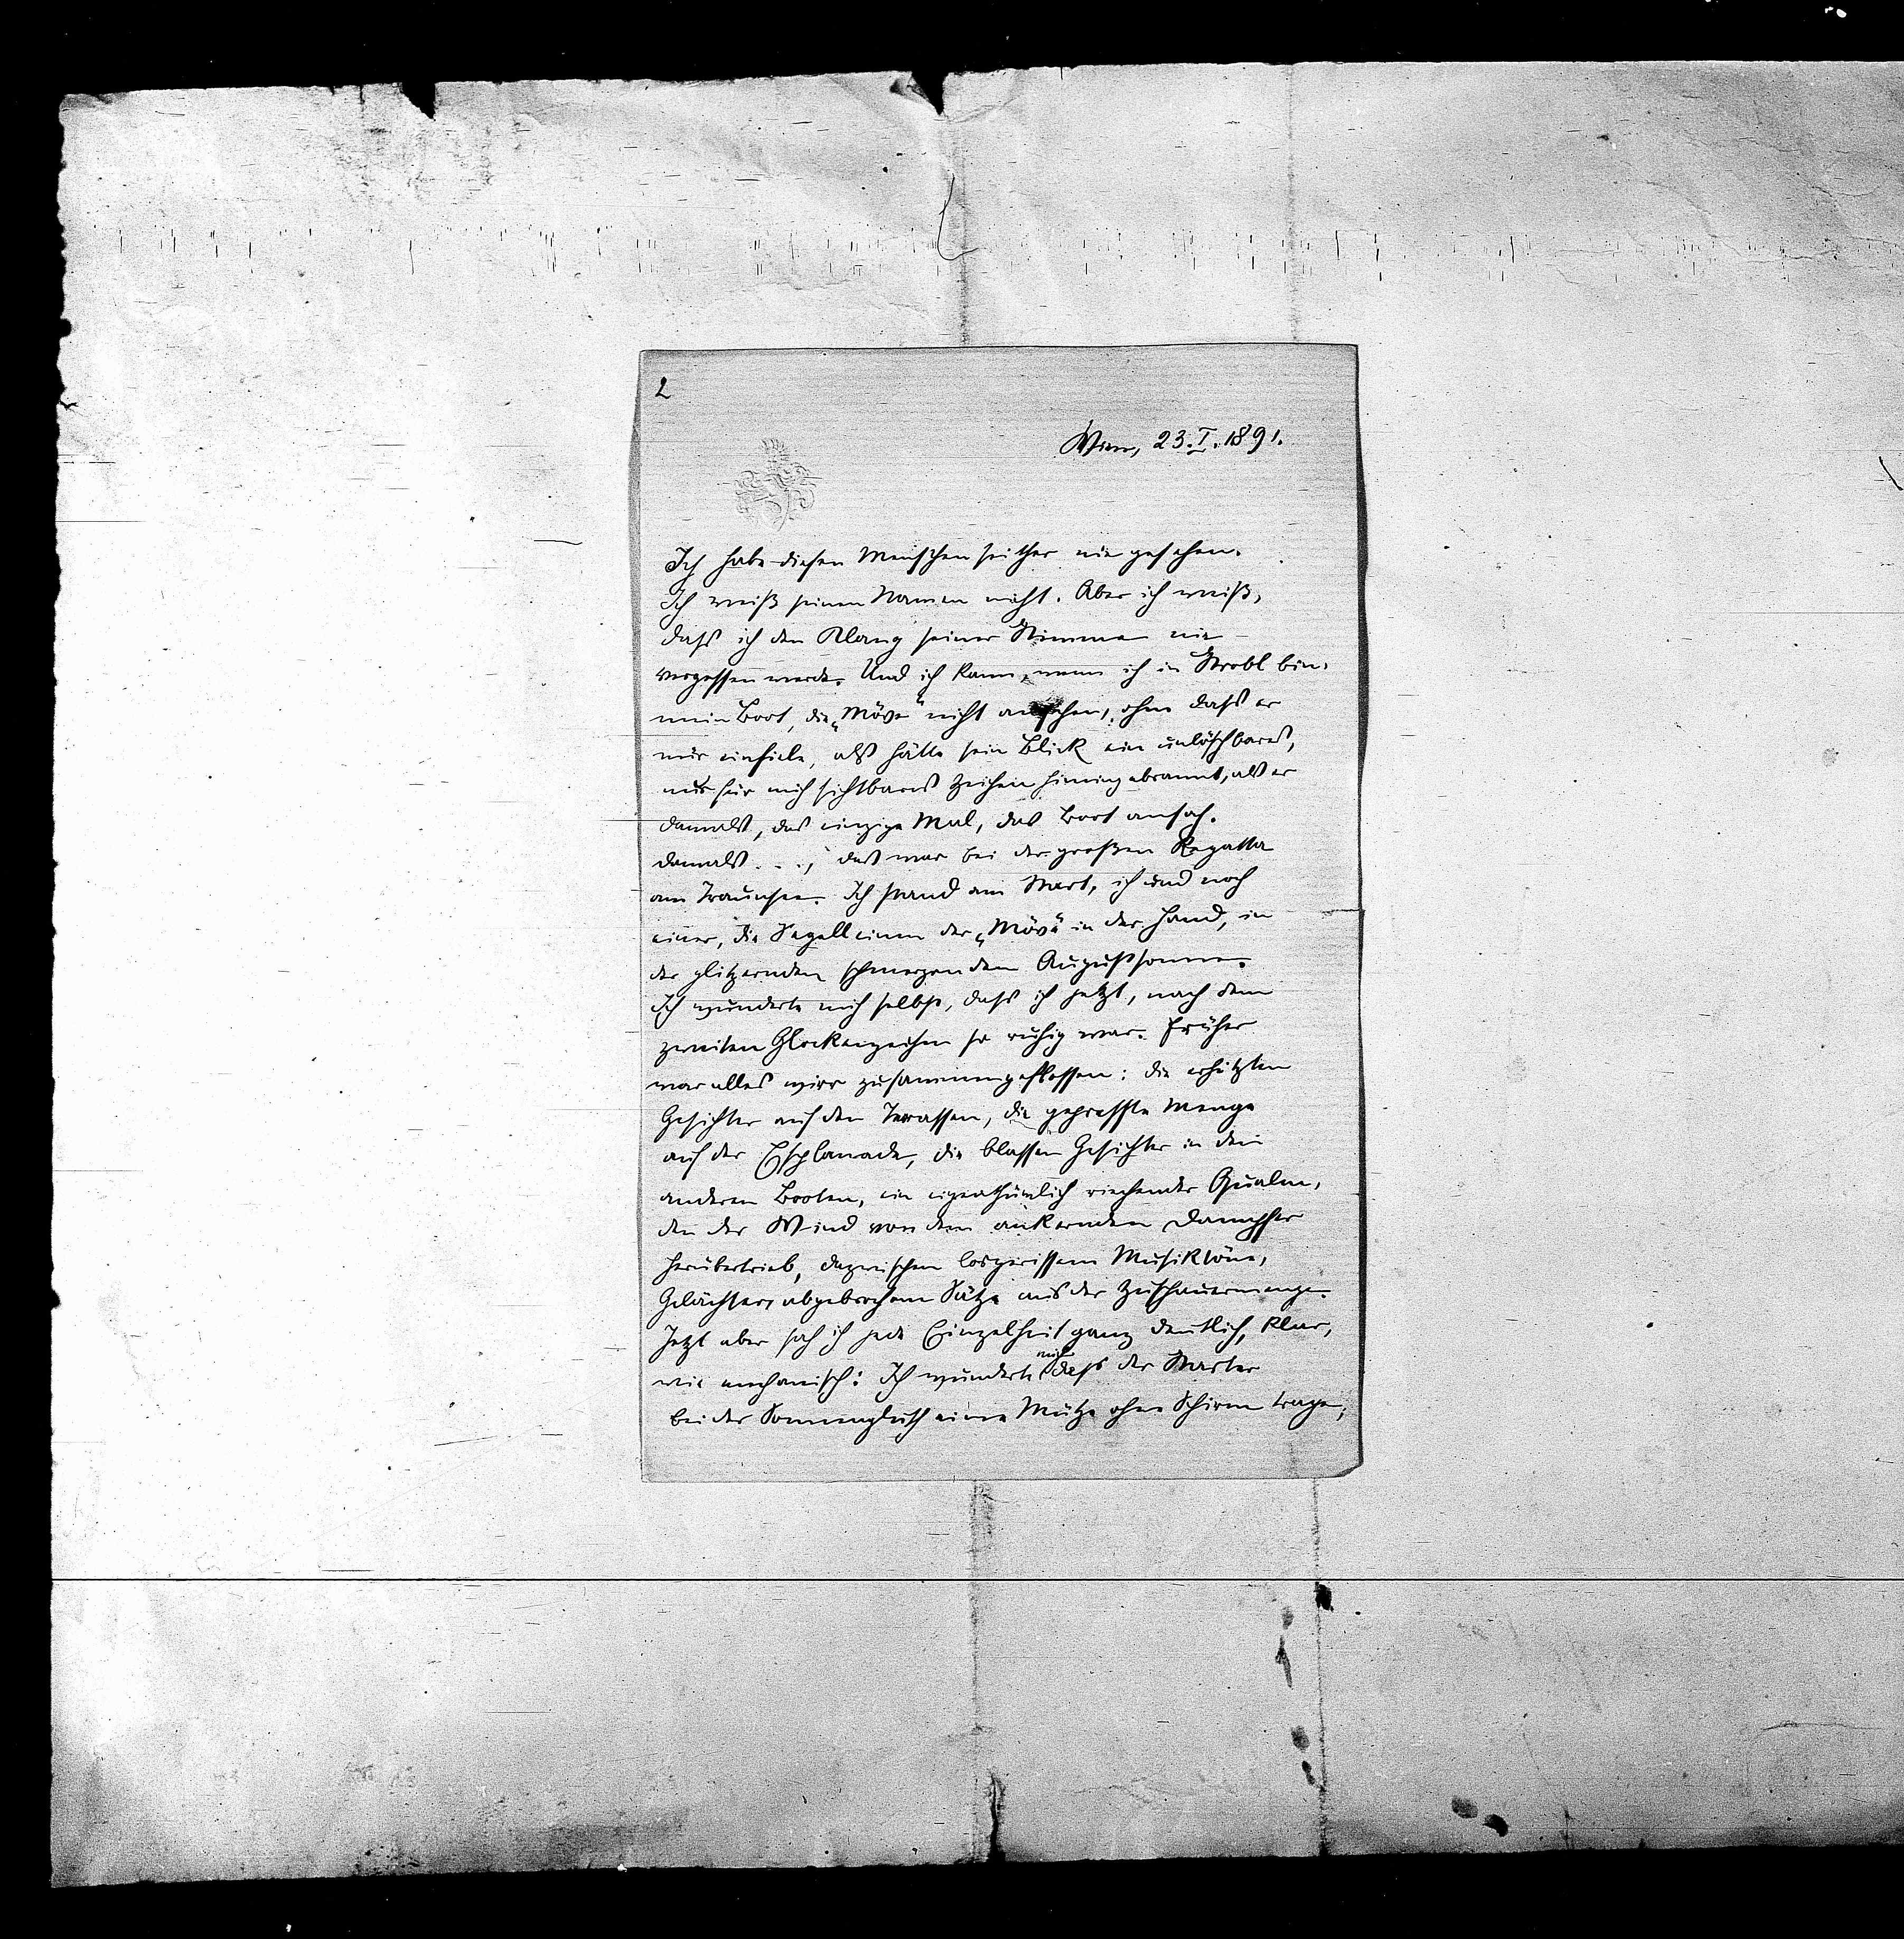 2
Wien, 23. I. 1891.
Ich habe diesen Menschen seither nie gesehen.
Ich weiß seinen Namen nicht. Aber ich weiß,
dass ich den Klang seiner Stimme nie
vergessen werde. Und ich kann, wenn ich in Strobl bin,
mein Boot, die „Möve" nicht ansehen, ohne dass er
mir einfiele, als hätte sein Blick ein unlöschbares,
nur für mich sichtbares Zeichen hineingebrannt, als er
damals, das einzige Mal, das Boot ansah.
Damals ..., das war bei der großen Regatta
am Traunsee. Ich stand am Start, ich und noch
einer, die Segelleinen der „Möve" in der Hand, in
der glitzernden schmerzenden Augustsonne.
Ich wunderte mich selbst, dass ich jetzt, nach dem
zweiten Glockenzeichen so ruhig war. Früher
war alles wirr zusammengeflossen: die erhitzten
Gesichter auf den Terrassen, die gepresste Menge
auf der Esplanade, die blassen Gesichter in den
anderen Booten, ein eigenthümlich riechender Qualm,
den der Wind von dem ankernden Dampfer
herübertrieb, dazwischen losgerissene Musiktöne,
Gelächter, abgebrochene Sätze aus der Zuschauermenge.
Jetzt aber sah ich jede Einzelheit ganz deutlich, klar,
wie mechanisch: Ich wunderte mich dass der Starter
bei der Sonnengluth eine Mütze ohne Schirm trage;